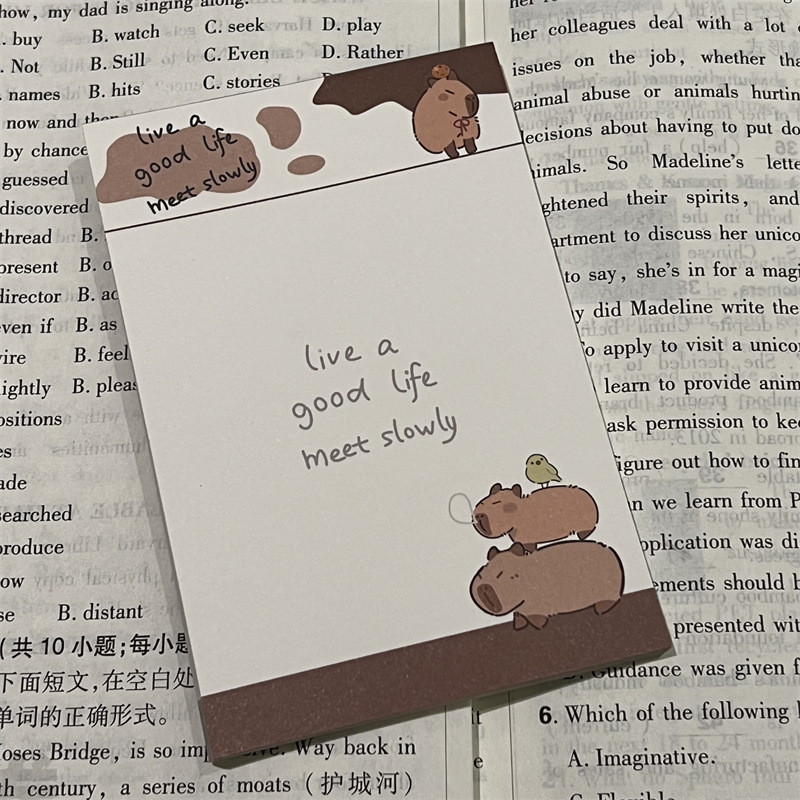 how, my dad is singing along.
buy B. watch C. seek D. play
Not B. Still C. Even D. Rather
names B. hits C. stories
now and then
by chance
guessed
discovered
thread B.
present B.
director B.
even if B. as
wire B. feel
B.
ositions
searched
produce
B. distant
(共 10 小题;每小题
下面短文,在空白处
单词的正确形式。
Moses Bridge, is so impressive. Way back in
th century, a series of moats (护城河)
live a
good life
meet slowly
live a
good life
meet slowly
her colleagues deal with a lot
issues on the job, whether
animal abuse or animals
decisions about having to put
animals. So Madeline's
their spirits, and
to discuss her
to say, she's in for a
did Madeline write the
To apply to visit a
learn to provide
ask permission to
figure out how to
n we learn from
application was
should
presented
D. Guidance was given
6. Which of the following
A. Imaginative.
C. Flexible.